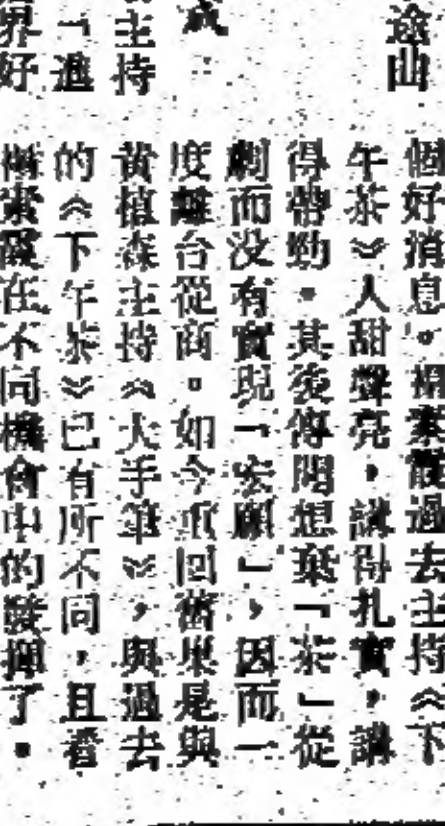 途山
個好消息。楊素霞過去主持《下
午茶》人甜聲亮，講得扎實，講
得帶勁。其後傳聞想棄「茶」從
劇而没有實現「宏願」，因而一
度離台從商。如今重回舊巢是與
黃植森主持《大手筆》，與過去
的《下午茶》已有所不同，且看
楊素霞在不同機會中的發揮了。
主持
「進
界好